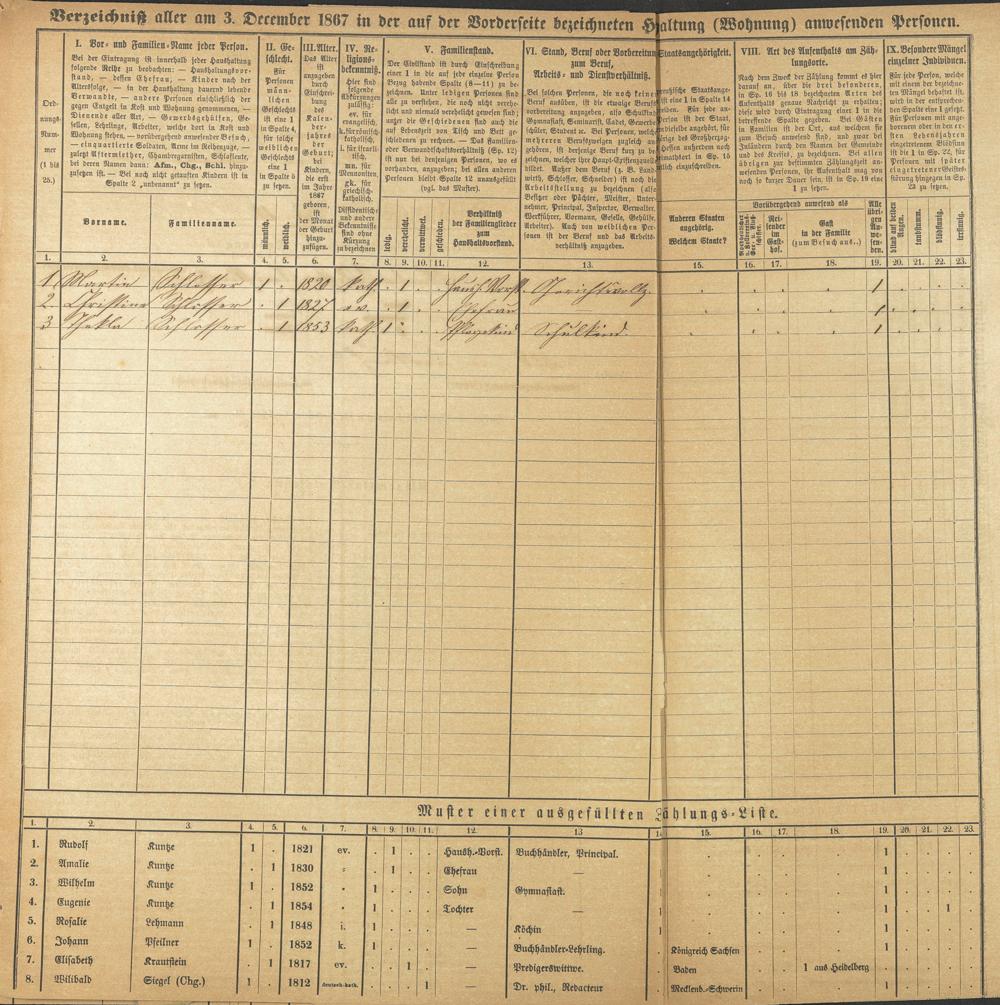 Verzeichniß aller am 3. December 1867 in der auf der Vorderseite bezeichneten Haushaltung (Wohnung) anwesenden Personen.
Ord-
nungs-
Num-
mer
(1 bis
25.)
I. Vor- und Familien-Name jeder Person.
Bei der Eintragung ist innerhalb jeder Haushaltung
folgende Reihe zu beobachten: — Haushaltungsvor-
stand, — dessen Ehefrau, — Kinder nach der
Altersfolge, — in der Haushaltung dauernd lebende
Verwandte, — andere Personen einschließlich der
gegen Entgelt in Kost und Wohnung genommenen, —
Dienende aller Art, — Gewerbsgehülfen, Ge-
sellen, Lehrlinge, Arbeiter, welche dort in Kost und
Wohnung stehen, — vorübergehend anwesender Besuch,
— einquartierte Soldaten, Arme im Reihenzuge, —
zuletzt Aftermiether, Chambregarnisten, Schlafleute,
bei deren Namen dann: Afm., Chg., Schl. hinzu-
zusetzen ist. — Bei noch nicht getauften Kindern ist in
Spalte 2 „unbenannt" zu setzen.
Vorname.
Familienname.
II. Ge-
schlecht.
Für
Personen
männ-
lichen
Geschlechts
ist eine 1
in Spalte 4,
für solche
weiblichen
Geschlechts
eine 1
in Spalte 5
zu setzen.
männlich.
weiblich.
III. Alter.
Das Alter
ist
anzugeben
durch
Einschrei-
bung
des
Kalen-
der-
jahres
der
Geburt;
bei
Kindern,
die erst
im Jahre
1867
geboren,
ist
der Monat
der Geburt
hinzu-
zufügen.
IV. Re-
ligions-
bekenntniß.
Hier sind
folgende
Abkürzungen
zulässig:
ev. für
evangelisch,
k. für römisch-
katholisch,
i. für israeli-
tisch,
mn. für
Mennoniten,
gk. für
griechisch-
katholisch.
Dissidentische
und andere
Bekenntnisse
sind ohne
Kürzung
zu bezeichnen
V. Familienstand.
Der Civilstand ist durch Einschreibung
einer 1 in die auf jede einzelne Person
Bezug habende Spalte (8—11) zu be-
zeichnen. Unter ledigen Personen sind
alle zu verstehen, die noch nicht verehe-
licht und niemals verehelicht gewesen sind;
unter die Geschiedenen sind auch die
auf Lebenszeit von Tisch und Bett ge-
schiedenen zu rechnen. — Das Familien-
oder Verwandtschaftsverhältniß (Sp. 12)
ist nur bei denjenigen Personen, wo es
vorhanden, anzugeben; bei allen anderen
Personen bleibt Spalte 12 unausgefüllt
(vgl. das Muster).
ledig.
verehelicht.
verwittwet.
geschieden.
Verhältniß
der Familienglieder
zum
Haushaltsvorstand.
VI. Stand, Beruf oder Vorbereitung
zum Beruf,
Arbeits- und Dienstverhältniß.
Bei solchen Personen, die noch keinen
Beruf ausüben, ist die etwaige Berufs-
vorbereitung anzugeben, also Schulkind,
Gymnasiast, Seminarist, Cadet, Gewerbe-
schüler, Student ꝛc. Bei Personen, welche
mehreren Berufszweigen zugleich an-
gehören, ist derjenige Beruf kurz zu be-
zeichnen, welcher ihre Haupt-Existenzquelle
bildet. Außer dem Beruf (z. B. Land-
wirth, Schlosser, Schneider) ist noch die
Arbeitsstellung zu bezeichnen (also
Besitzer oder Pächter, Meister, Unter-
nehmer, Principal, Inspector, Verwalter,
Werkführer, Vormann, Geselle, Gehülfe,
Arbeiter). Auch von weiblichen Per-
sonen ist der Beruf und das Arbeits-
verhältniß anzugeben.
Staatsangehörigkeit.
Anderen Staaten
angehörig.
Welchem Staate?
VIII. Art des Aufenthalts am Zäh-
lungsorte.
Nach dem Zweck der Zählung kommt es hier
darauf an, über die drei besonderen,
in Sp. 16 bis 18 bezeichneten Arten des
Aufenthalts genaue Nachricht zu erhalten;
diese wird durch Eintragung einer 1 in die
betreffende Spalte gegeben. Bei Gästen
in Familien ist der Ort, aus welchem sie
zum Besuch anwesend sind, und zwar bei
Inländern durch den Namen der Gemeinde
und des Kreises, zu bezeichnen. Bei allen
übrigen zur bestimmten Zählungszeit an-
wesenden Personen, ihr Aufenthalt mag von
noch so kurzer Dauer sein, ist in Sp. 19 eine
1 zu setzen.
Vorübergehend anwesend als
Rei-
sender
im
Gast-
hof.
Gast
in der Familie
(zum Besuch aus..)
Alle
übri-
gen
An-
we-
sen-
den.
IX. Besondere Mängel
einzelner Individuen.
Für jede Person, welche
mit einem der bezeichne-
ten Mängel behaftet ist,
wird in der entsprechen-
den Spalte eine 1 gesetzt.
Für Personen mit ange-
borenem oder in den er-
sten Lebensjahren
eingetretenem Blödsinn
ist die 1 in Sp. 22, für
Personen mit später
eingetretener Geistes-
störung hingegen in Sp.
23 zu setzen.
blind auf beiden
Augen.
taubstumm.
blödsinnig.
irrsinnig.
1. 2. 3. 4. 5. 6. 7. 8. 9. 10. 11. 12. 13. 15. 16. 17. 18. 19. 20. 21. 22. 23.
1. Martin Schlosser 1 . 1820 kath. . 1 . . Haush. Vorst. Gerichtsvollz. . . . . 1 . . . .
2. Christine Schlosser . 1 1827 ev. . 1 . . Ehefrau 1
3 Thekla Schlosser . 1 1853 kath. 1 . . . Pflegekind Schulkind. . . . . 1 . . . .
Muster einer ausgefüllten Zählungs-Liste.
1. 2. 3. 4. 5. 6. 7. 8. 9. 10. 11. 12. 13 15. 16. 17. 18. 19. 20. 21. 22. 23.
1. Rudolf Kuntze 1 . 1821 ev. . 1 . . Haush.-Vorst. Buchhändler, Principal. . . . . 1 . . . .
2. Amalie Kuntze . 1 1830 „ . 1 . . Ehefrau — . . . . 1 . . . .
3. Wilhelm Kuntze 1 . 1852 „ 1 . . . Sohn Gymnasiast. . . . . 1 . . . .
4. Eugenie Kuntze . 1 1854 „ 1 . . . Tochter — 1 . . . . 1 . . 1 .
5. Rosalie Lehmann . 1 1848 i. 1 . . . — Köchin 1 . . . . 1 . . . .
6. Johann Pfeilner 1 . 1852 k. 1 . . . — Buchhändler-Lehrling. Königreich Sachsen . . . 1 . . . .
7. Elisabeth Krautstein . 1 1817 ev. . . 1 . — Predigerswittwe. Baden . . 1 aus Heidelberg . . . . .
8. Wilibald Siegel (Chg.) 1 . 1812 deutsch-kath. . . . 1 — Dr. phil., Redacteur Mecklenb.-Schwerin . . . 1 . . . .